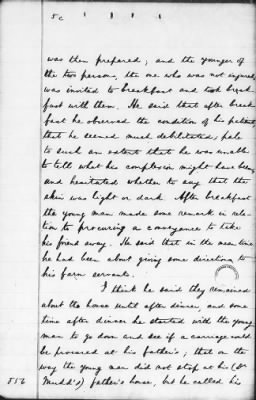 5c
was then prepared; and the younger of
the two persons, the one who was not injured,
was invited to breakfast and took break-
fast with them. He said that after break-
fast he observed the condition of his patient,
that he seemed much debilitated; pale
to such an extent that he was unable
to tell what his complexion might have been,
and hesitated whether to say that the
skin was light or dark. After breakfast
the young man made some remark in rela-
tion to procuring a conveyance to take
his friend away. He said that in the mean time
he had been about giving some direction to
his farm servants.
I think he said they remained
about the house until after dinner, and some
time after dinner he started with the young
man to go down and see if a carriage could
be procured at his father's; that on the
way the young man did not stop at his (Dr
556 Mudd's) father's house, but he called his